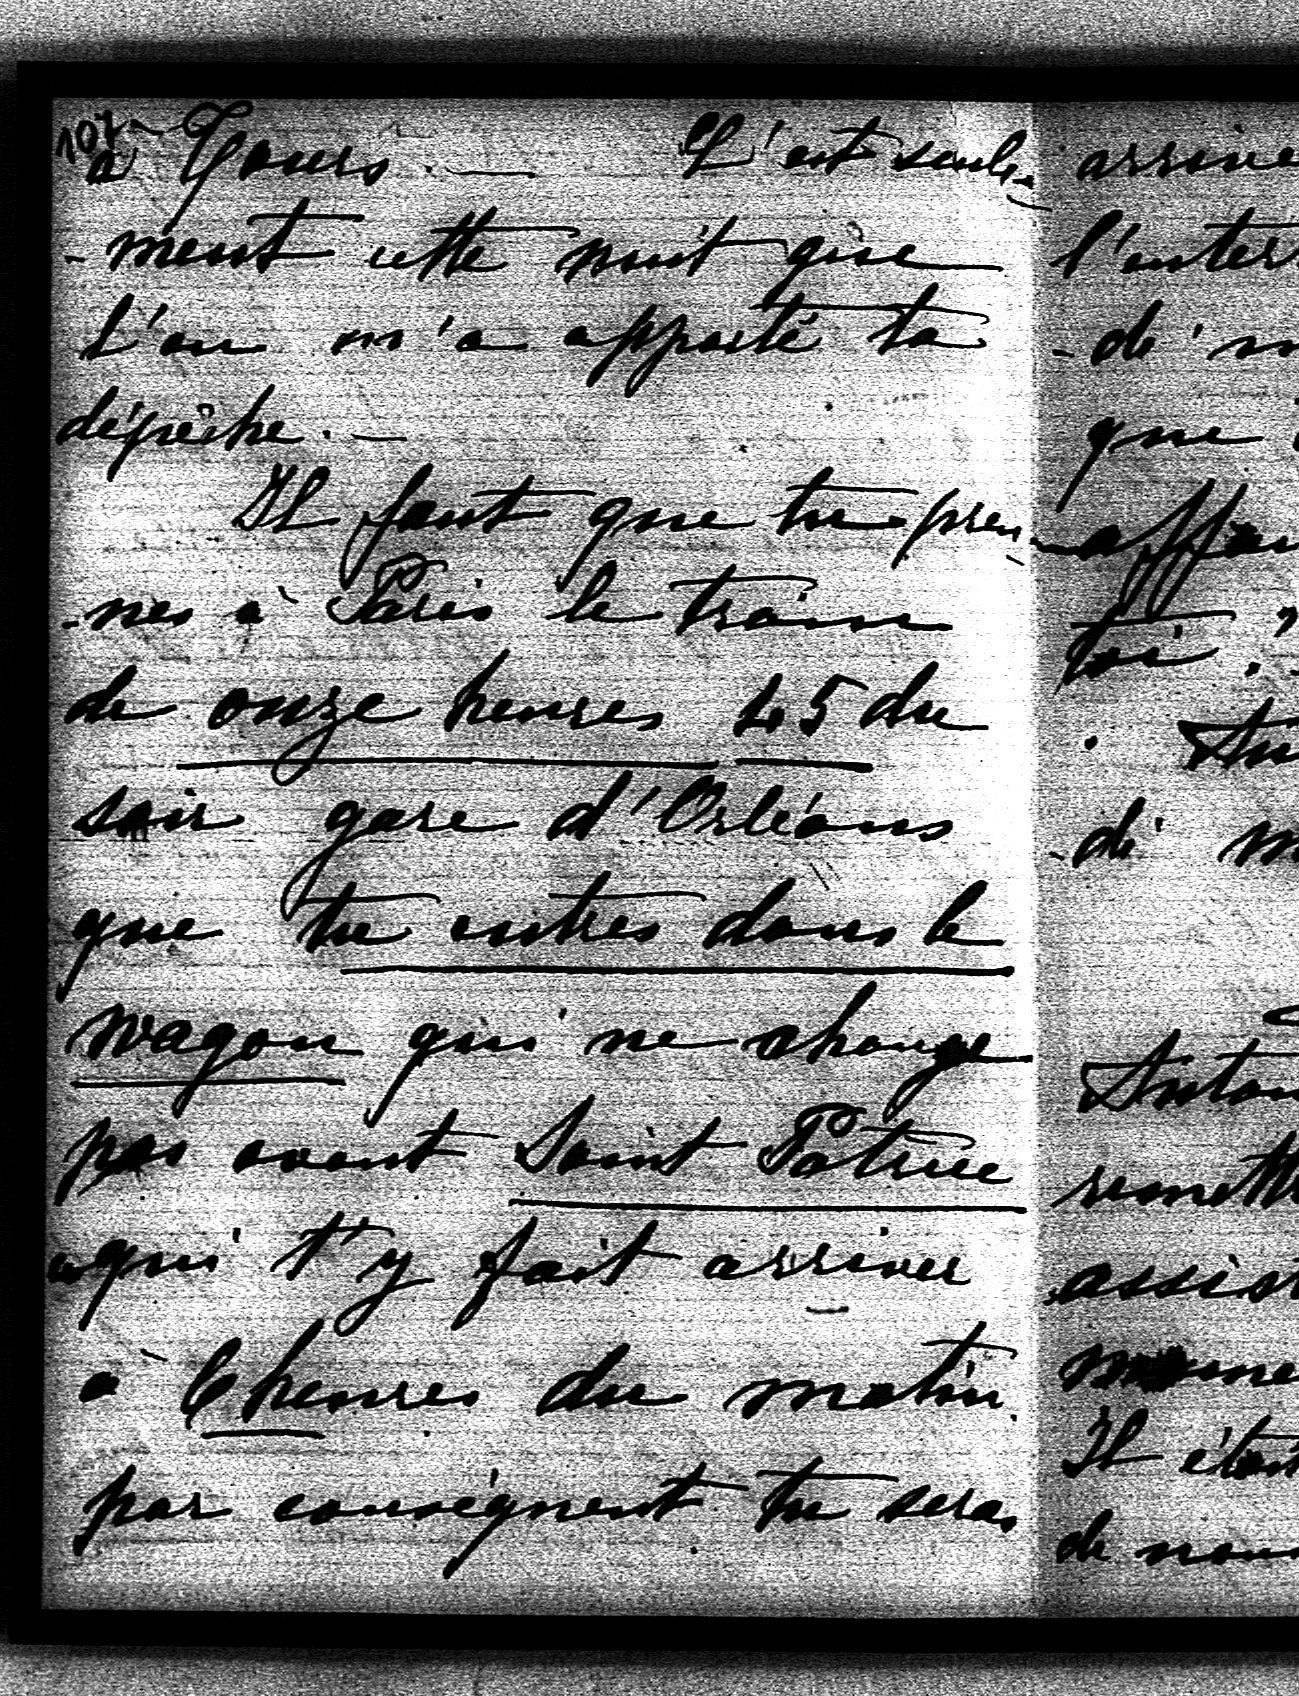 107
à Tours. — C'est seule-
-ment cette nuit que
l'on m'a apporté ta
dépêche. —
Il faut que tu pren-
-nes à Paris le train
de onze heures 45 du
soir gare d'Orléans
que tu entres dans le
wagon qui ne change
pas avant Saint Patrice
qui t'y fait arriver
à 6 heures du matin.
par conséquent tu seras
arrive
l'inter
-dé m
que
affai
toi.
-dé m
Anton
remett
assist
Il étai
de nou